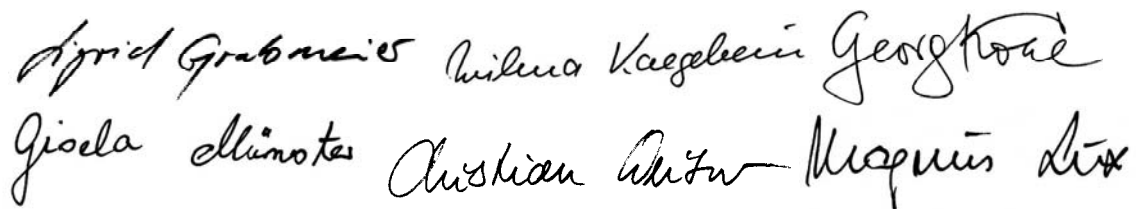 Sigrid Grabmeier Wilma Kaegebein Georg Korié
Gisela Münster Christian Magnus Lux